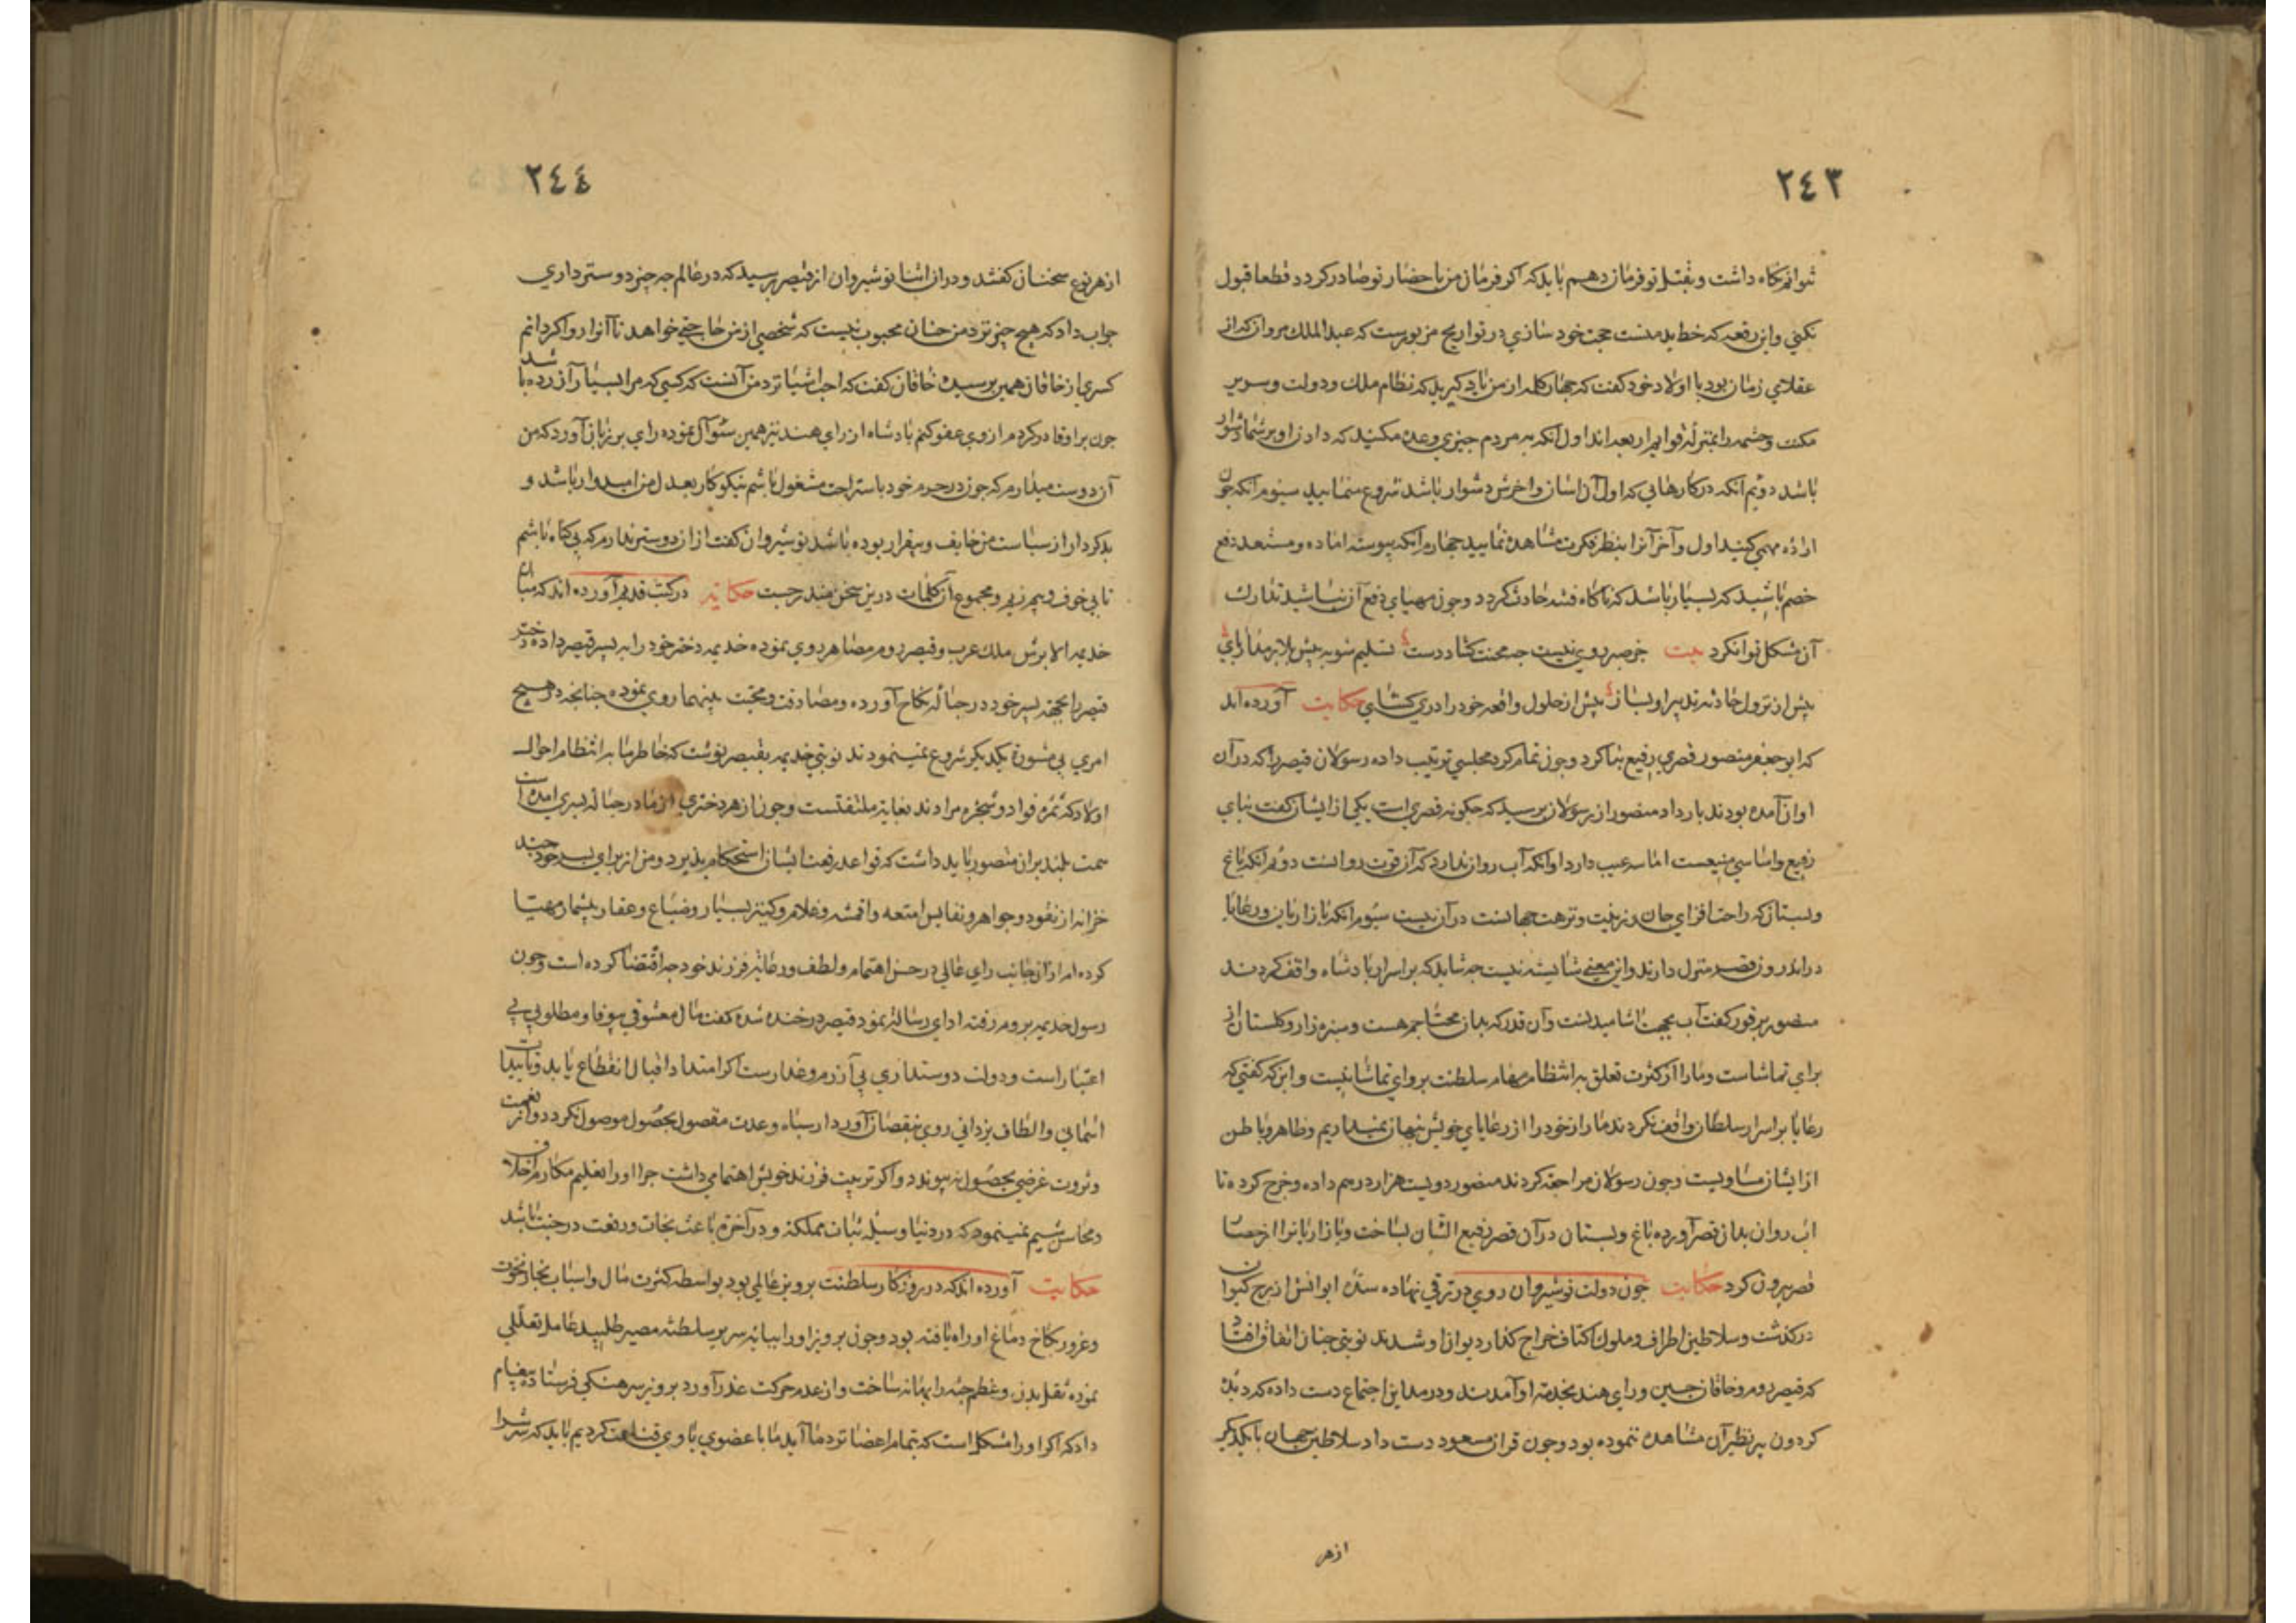 ٢٤٣
توانم نگاه داشت و بقتل تو فرمان دهم باید که اگر فرمان من باحضار تو صادر کردد قطعا قبول
نکنی و این رقعه که خط ید منست حجت خود سازی در تواریخ مزبورست که عبدالملک مروان که از
عقلای زمان بود با اولاد خود کفت که چهار کلمه از من یاد کیرید که نظام ملک و دولت و سریر
مکنت و حشمت را بمنزلهٔ قوایم اربعه اند اول آنکه به مردم چیزی وعده مکنید که دادن او بر شما دشوار
باشد دوّیم آنکه در کارهایی که اول آن آسان و آخرش دشوار باشد شروع منمایید سیوم آنکه چون
اراده مهمی کنید اول و آخر آنرا بنظر فکرت مشاهده نمایید چهارم آنکه پیوسته اماده و مستعد دفع
خصم باشید که بسیار باشد که ناکاه فتنه حادث کردد و چون مهیای دفع آن نباشید تدارک
آن مشکل توان کرد بیت
پیش از نزول حادثه تدبیر او بساز پیش از حلول واقعه خود را دری کشای حکایت آورده اند
که ابو جعفر منصور قصری رفیع بنا کرد و چون تمام کرد مجلسی ترتیب داده رسولان قیصر را که در آن
اوان آمده بودند بار داد منصور از رسولان پرسید که چکونه قصری است یکی از ایشان کفت بنای
رفیع و اساسی منیعست اما سه عیب دارد اول آنکه آب روان ندارد که آن قوت روانست دوّیم آنکه باغ
و بستان که راحت افزای جان و زینت و نزهت جهانست در آن نیست سیّوم آنکه بازاریان و رعایا
در اندرون قصر منزل دارند و این معنی شایسته نیست چه شاید که بر اسرار پادشاه واقف کردند
منصور بر فور کفت آب بجهت اشامیدنست و آن قدر که بدان محتاجیم هست و سبزه زار و کلستان از
برای تماشاست و ما را از کثرت تعلق به انتظام مهام سلطنت پروای تماشا نیست و اینکه کفتی که
رعایا بر اسرار سلطان واقف نکردند ما راز خود را از رعایای خویش نهان نمیداریم و ظاهر و باطن
از ایشان مساویست و چون رسولان مراجعه کردند منصور دویست هزار درم داده و خرج کرده تا
اب روان بدان قصر آورده باغ و بستان در آن قصر رفیع الشان بساخت و بازاریانرا از حصار
قصر بیرون کرد حکایت چون دولت نوشیروان روی در ترقی نهاده سدّه ایوانش از برج کیوان
درکذشت و سلاطین اطراف و ملوک اکناف خراج کذار دیوان او شدند نوبتی چنان اتفاق افتاد
که قیصر روم و خاقان چین و رای هند بخدمت او آمدند و در مداین اجتماع دست داده که دیدهٔ
کردون پیر نظیر آن مشاهده ننموده بود و چون قران مسعود دست داد سلاطین جهان با یکدیکر
ازهر
٢٤٤
از هر نوع سخنان کفتند و در آن اثنا نوشیروان از قیصر پرسید که در عالم چه چیز دوستر داری
جواب داد که هیچ چیز نزد من چنان محبوب نیست که شخصی از من حاجتی خواهد تا آنرا روا کردانم
کسری از خاقان همین پرسید خاقان کفت که احب اشیا نزد من آنست که کسی که مرا بسیار آزرده باشد
چون بر او قادر کردم از وی عفو کنم پادشاه از رای هند نیز همین سئوال نموده رای بر زبان آورد که من
آن دوست میدارم که چون در حرم خود باستراحت مشغول باشم نیکو کار بعدل من امیدوار باشد و
بدکردار از سیاست من خایف و بیقرار بوده باشد نوشیروان کفت از آن دوستر ندارم که بی کناه باشم
تا بی خوف و بیم زیم و مجموع آن کلمات درین سخن مندرجست حکایت در کتب قدیم آورده اند که میان
خدیمه الابرش ملک عرب و قیصر روم مصاهر روی نموده خدیمه دختر خود را به پسر قیصر داده و دختر
قیصر را بجهة پسر خود در حباله نکاح آورده و مصادقت و محبت بینهما روی نموده چنانچه در هیچ
امری بی مشورة یکدیکر شروع نمینمودند نوبتی خدیمه بقیصر نوشت که خاطر ما به انتظام احوال
اولاد که ثمره فواد و شجره مرادند بغایة ملتفتست و چون از هر دختری از ما در حباله پسری آمده است
همت بلند بر آن مقصور باید داشت که قواعد رفعت ایشان استحکام پذیرد و من از برای پسر خود چند
خزانه از نقود و جواهر و نفایس امتعه و اقمشه و غلام و کنیز بسیار و ضیاع و عقار بیشمار مهیا
کرده ام از آن جانب رای عالی در حسن اهتمام و لطف و رعایة فرزند خود چه اقتضا کرده است و چون
رسول خدیمه بروم رفته ادای رساله نمود قیصر در خنده شده کفت مال معشوقی بیوفا و مطلوبی بی
اعتبار است و دولت دوستداری بی آزرم و غدارست اکر امتداد اقبال انقطاع یابد و تاییدات
اسمانی و الطاف یزدانی روی بنقصان آورد از سپاه و عدت مقصود بحصول موصول نکردد و از نعمت
و ثروت غرضی بحصول نه پیوندد و اکر تربیت فرزند خویش اهتمامی داشت چرا او را تعلیم مکارم اخلاق
و محاسن شیم نمینمود که در دنیا وسیله ثبات مملکة و در آخرة باعث نجات و رفعت درجات باشد
حکایت آورده اند که در روزکار سلطنت پرویز عاملی بود بواسطه کثرت مال و اسباب بخار نخوت
و غرور بکاخ دماغ او راه یافته بود و چون پرویز او را بپایه سریر سلطنة مصیر طلبید عامل تعللی
نموده ثقل بدن و عظم جثه را بهانه ساخت و از عدم حرکت عذر آورد پرویز سرهنکی فرستاد پیغام
داد که اکر او را مشکل است که بتمام اعضا نزد ما آید ما با عضوی با وی قناعت کردیم باید که سرش را